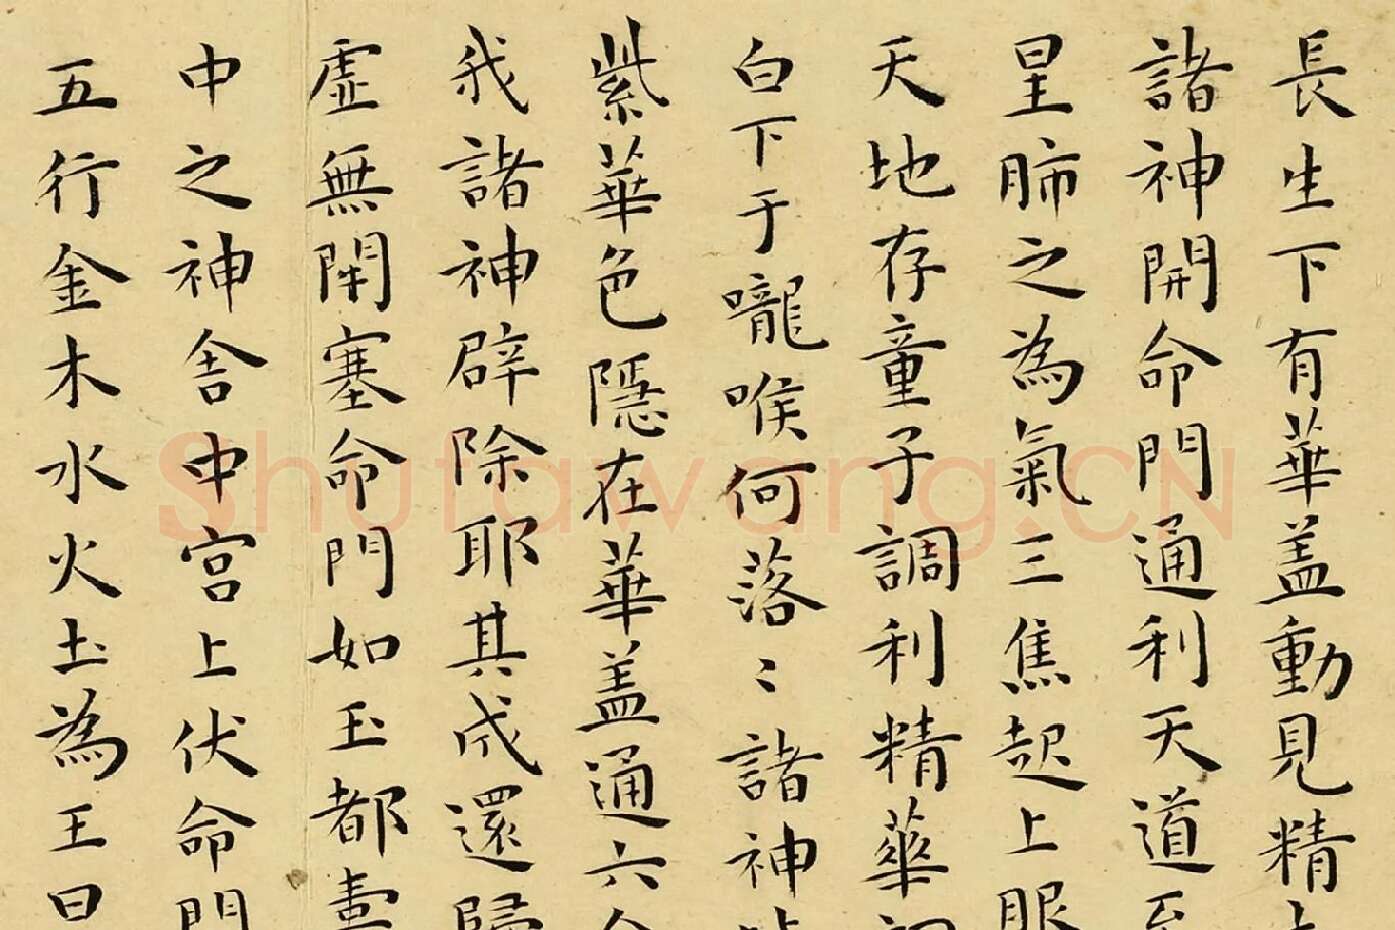 長生下有華盖動見精
諸神開命門通利天道至
星肺之為氣三焦起上服
天地存童子調利精華
白下于嚨喉何落〻諸神
紫華色隱在華盖通六合
我諸神辟除耶其成還歸
虛無閑塞命門如玉都壽
中之神舍中宮上伏命門
五行金木水火土為王日
Shufawang.CN